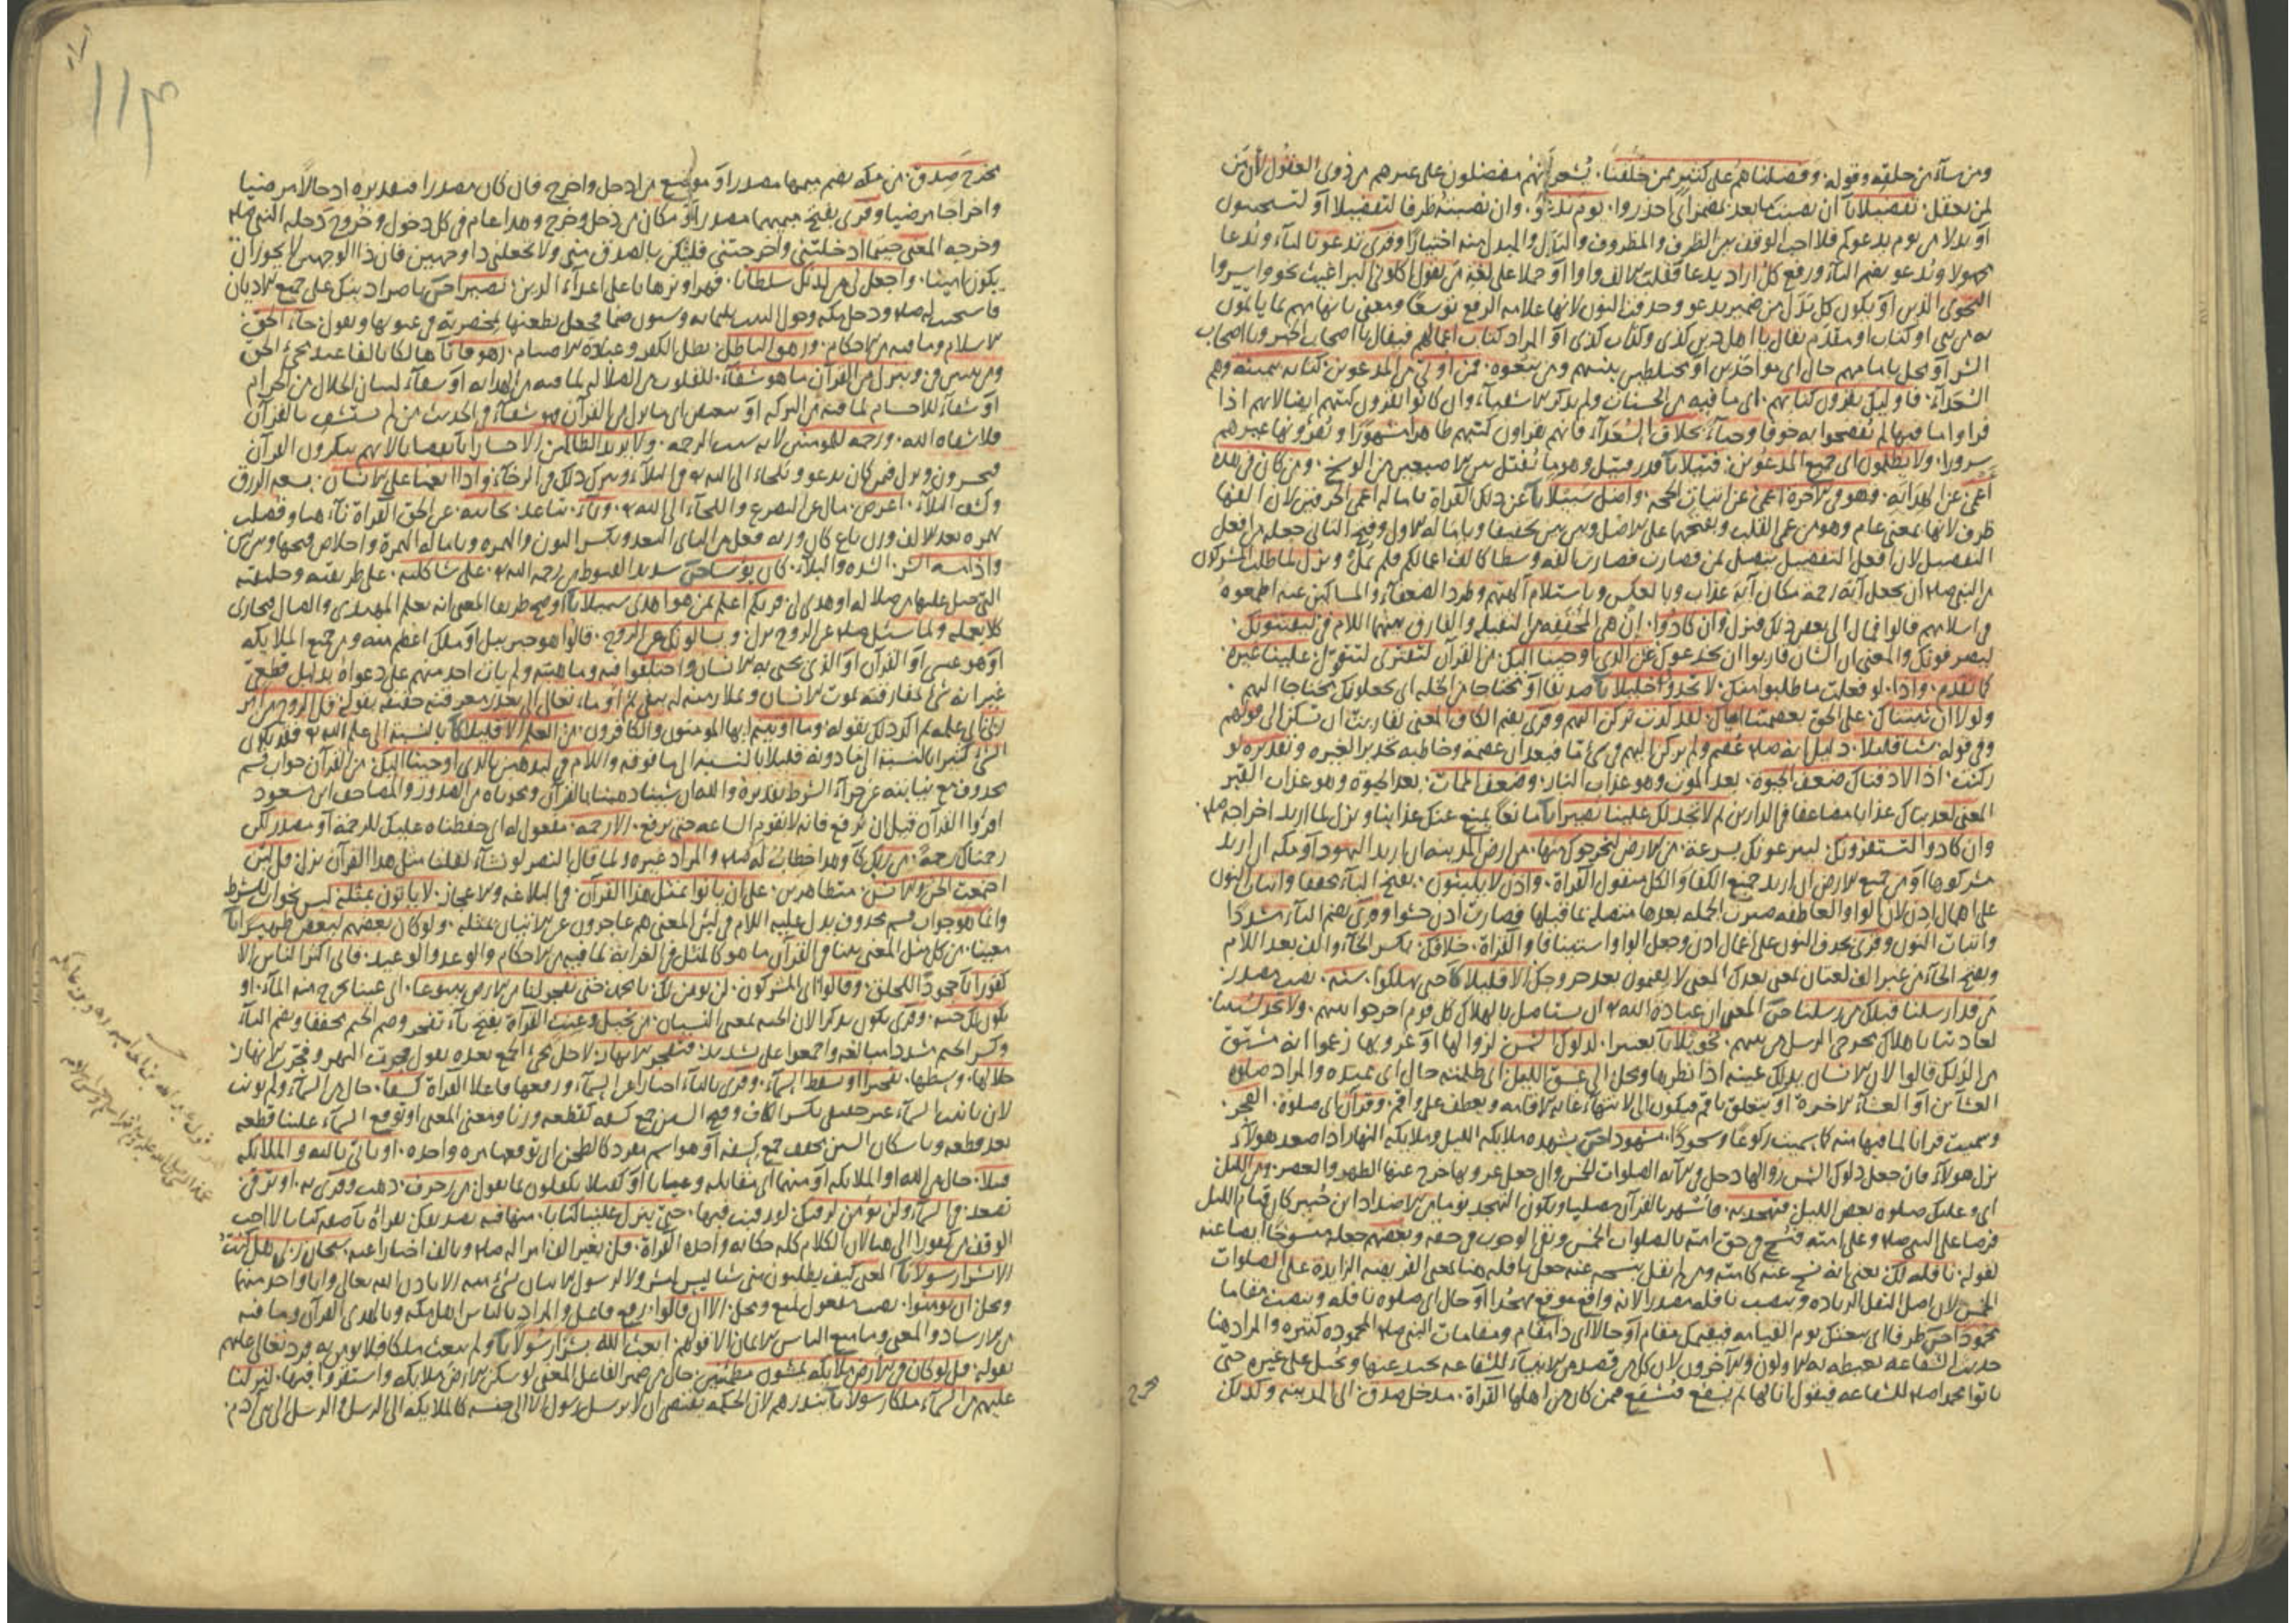 ومن سآء من خلقه وقوله وفضلناهم على كثير ممن خلقنا يشعر انهم مفضلون على غيرهم من ذوى العقول لان من
لمن يعقل تفضيلا ان نصبت بما بعد بمضمر اى احذروا يوم ندعو وان نصبته ظرفا لتفضيلا او
او بدلا من يوم يدعوكم فلا احب الوقف بين الظرف والمظروف والبدل والمبدل منه اختيارا وقرئ تدعو تالتآء وندعا
مجهولا وندعو بضم اليآء ورفع كل اراد يدعا فقلبت الالف واوا او حملا على لغة من يقول اكلونى البراغيث نحو واسروا
النجوى الذين او يكون كل بدل من ضمير يدعو وحذفت النون لانها علامة الرفع توسعا ومعنى بامامهم بما ياتمون
به من نبى او كتاب او مقدم يقال يا اهل دين كذى وكتاب كذى او المراد كتاب اعمالهم فيقال يا اصحاب الخير ويا اصحاب
الشر او محل بامامهم حال اى مختلطين بنبيهم ومن يتبعوه فمن اوتى من المدعوين كتابه بيمينه وهم
السعدآء فاوليك يقرون كتابهم اى ما فيه من الحسنات ولم يذكر الاشقيآء وان كانوا يقرون كتبهم ايضا لانهم اذا
قراوا ما فيها لم يفصحوا به خوفا وحيآء بخلاف السعدآء فانهم يقراون كتبهم ظاهرا مشهورا ويقرونها غيرهم
سرورا ولا يظلمون اى جميع المدعوين فتيلا قدر فتيل وهو ما يفتل بين الاصبعين من الوسخ ومن كان فى هذه
اعمى عن الهداية فهو فى الاخرة اعمى عن اثبات الحجة واضل سبيلا عن ذلك القراة بامالة اعمى الحرفين لان الفها
طرف لانها بمعنى عام وهو من عمى القلب وبفتحها على الاصل وبين بين تخفيفا وبامالة الاول وفتح الثانى جعله من افعل
التفضيل لان افعل التفضيل يتصل بمن فصارت فصارت الفه وسطا كالف اعمالكم فلم يمل ونزل لما طلب المشركون
من النبى صلم ان يجعل اية رحمة مكان آية عذاب وبالعكس وباستلام آلهتهم وطرد الضعفآء والمساكين عنه اطمعوه
فى اسلامهم قالوا فمال الى بعض ذلك فنزل وان كادوا ان هى المخففة من الثقيلة والفارق بينهما اللام فى ليفتنونك
ليصرفونك والمعنى ان الشان قاربوا ان يخدعوك عن الذى اوحينا اليك من القرآن لتفترى لتتقول علينا غيره
كما تقدم واذا لو فعلت ما طلبوا منك لاتخذوك خليلا صديقا او محتاجا من الخلة اى يجعلونك محتاجا اليهم
ولولا ان ثبتناك على الحق بعصمتنا اياك لقد كدت تركن اليهم وقرئ بضم الكاف المعنى لقاربت ان تسكن الى قولهم
وفى قوله شيا قليلا دليل انه صلم عصم ولم يركن اليهم فى شئ ما فبعد ان عصمه وخاطبه تحذيرا لغيره وتقديره لو
ركنت اذا لاذقناك ضعف الحيوة بعد الموت وهو عذاب النار وضعف الممات بعد الحيوة وهو عذاب القبر
المعنى لعذبناك عذابا مضاعفا فى الدارين ثم لا تجد لك علينا نصيرا مانعا يمنع عنك عذابنا ونزل لما اريد اخراجه صلم
وان كادوا ليستفزونك ليزعجونك بسرعة من الارض ليخرجوك منها من ارض المدينة ان اريد اليهود او مكة ان اريد
مشركوها او من جميع الارض ان اريد جميع الكفار والكل منقول القراة واذن لا يلبثون بفتح اليآء مخففا واثبات النون
على اهمال اذن لان الواو العاطفة صيرت الجملة بعدها متصلة بما قبلها فصارت اذن حشوا وقرئ بضم اليآء مشددا
واثبات النون وقرئ بحذف النون على اعمال اذن وجعل الواو استينافا والقراة خلافك بكسر الخآء والف بعد اللام
وبفتح الخآء من غير الف لغتان بمعنى بعدك المعنى لا يقيمون بعد خروجك الا قليلا حتى يهلكوا سنة نصب مصدر
من قد ارسلنا قبلك من رسلنا المعنى ان عبادة الله ان يستاصل بالهلاك كل قوم اخرجوا نبيهم ولا تجد لسنتنا
لعادتنا باهلاك مخرجى الرسل من بينهم تحويلا تغييرا لدلوك الشمس لزوالها او غروبها زعموا انه مشتق
من الدلك قالوا لان الانسان يدلك عينه اذا نظرها ومحل الى غسق الليل الى ظلمته حال اى ممتده والمراد صلوة
العشآين او العشآء الاخرة او يتعلق باقم فيكون الى لانتهآء غاية الاقامة ويعطف على واقم وقرآن اى صلوة الفجر
وسميت قرانا لما فيها منه كما سميت ركوعا وسجودا مشهودا يشهده ملايكة الليل وملايكة النهار اذا صعد هولآء
نزل هولآء فان جعل دلوك الشمس زوالها دخل فى الآية الصلوات الخمس وان جعل غروبها خرج عنها الظهر والعصر ومن الليل
اى وعليك صلوة بعض الليل فتهجد به فاسهر بالقرآن مصليا ويكون التهجد نوما من الاضداد ابن جبير كان قيام الليل
فرضا على النبى صلم وعلى امته فنسخ فى حق امته بالصلوات الخمس وبقى الوجوب فى حقه وبعضهم جعله منسوخا ايضا عنه
لقوله نافلة لك يعنى انه نسخ عنه كامته ومن لم يقل بنسخه عنه جعل نافلة هنا بمعنى الفريضة الزايدة على الصلوات
الخمس لان اصل النفل الزيادة ونصب نافلة مصدر الانه واقع موقع تهجدا او حال اى صلوة نافلة ونصبت مقاما
محمودا ظرفا اى يبعثك يوم القيامة فيقيمك مقام او حالا اى ذا مقام ومقامات النبى صلم المحمودة كثيرة والمراد هنا
حديث الشفاعة يغبطه به الاولون والآخرون لان كل من قصد من الانبيآء للشفاعة يحيد عنها ويحيل على غيره حتى
ياتوا محمدا صلم للشفاعة فيقول انا لها ثم يشفع فيشفع فمن كان من اهلها القراة مدخل صدق الى المدينة وكذلك
مخرج
١١٣
مخرج صدق من مكة بضم ميمهما مصدرا او موضع من ادخل واخرج فان كان مصدرا فتقديره ادخالا مرضيا
واخراجا مرضيا وقرئ بفتح ميمهما مصدرا او مكان من دخل وخرج وهذا عام فى كل دخول وخروج دخله النبى صلم
وخرجه المعنى حيثما ادخلتنى واخرجتنى فليكن بالصدق منى ولا تجعلنى ذا وجهين فان ذا الوجهين لا يجوز ان
يكون امينا واجعل لى من لدنك سلطانا قهرا وبرهانا على اعدآء الدين نصيرا ناصرا دينك على جميع الاديان
فاستجيب له صلم ودخل مكة وحول البيت ثلثماية وستون صنما فجعل يطعنها بمخصرته فى عيونها ويقول جآء الحق
الاسلام وما فيه من الاحكام وزهق الباطل بطل الكفر وعبادة الاصنام زهوقا هالكا
وننزل من القرآن ما هو شفآء للقلوب من الضلالة لما فيه من الهداية او شفآء لبيان الحلال من الحرام
او شفآء للاجسام لما فيه من البركة او بتبعيض اى ما نزل من القرآن فهو شفآء وفى الحديث من لم يستشف بالقرآن
فلا شفاه الله ورحمة للمومنين لانه سبب الرحمة ولا يزيد الظالمين الا خسارا نقصانا لانهم ينكرون القرآن
فيخسرون ونزل فمن كان يدعو ويلجاء الى الله فى البلآء ويترك ذلك فى الرخآء واذا انعمنا على الانسان بسعة الرزق
وكشف البلآء اعرض مال عن التضرع والالتجآء الى الله ونآء تباعد بجانبه عن الحق القراة نآء هنا وفصلت
واذا مسه الشر الشدة والبلآء كان يوسا شديد القنوط من رحمة الله على شاكلته على طريقته وخليقته
التى جبل عليها من ضلالة او هدى فربكم اعلم بمن هو اهدى سبيلا اوضح طريقا المعنى انه يعلم المهتدى والضال فيجازى
كلا بعمله ولما سئل صلم عن الروح نزل ويسالونك عن الروح قالوا هو جبريل او ملك اعظم منه ومن جميع الملايكة
او هو عيسى او القرآن او الذى يحيى به الانسان واختلفوا فيه وماهيته ولم يات احد منهم على دعواه بدليل قطعى
غير انه شئ بمفارقته يموت الانسان وبملازمته له يبقى ثم اومآء تعالى الى تعذر معرفته حقيقة بقوله قل الروح من امر
ربى اى علمه ثم اكد ذلك بقوله وما اوتيتم ايها المومنون والكافرون من العلم الا قليلا بالنسبة الى علم الله فقد يكون
الشئ كثيرا بالنسبة الى ما دونه قليلا بالنسبة الى ما فوقه واللام فى لنذهبن بالذى اوحينا اليك من القرآن جواب قسم
محذوف مع نيابته عن جزآء الشرط تقديره والله ان شينا ذهبنا بالقرآن ومحوناه من الصدور والمصاحف ابن مسعود
اقروا القرآن قبل ان يرفع فانه لا تقوم الساعة حتى يرفع الا رحمة مفعول له اى حفظناه عليك للرحمة او مصدر لكن
رحمناك رحمة من ربك وهذا خطاب له صلم والمراد غيره ولما قال النضر لو نشآء لقلنا مثل هذا القرآن نزل قل لين
اجتمعت الجن والانس متظاهرين على ان ياتوا بمثل هذا القرآن فى البلاغة والاعجاز لا ياتون بمثله ليس بجواب للشرط
وانما هو جواب قسم محذوف يدل عليه اللام فى لين المعنى هم عاجزون عن الاتيان بمثله ولو كان بعضهم لبعض ظهيرا
معينا من كل مثل المعنى بينا فى القرآن ما هو كالمثل فى الغرابة لما فيه من الاحكام والوعد والوعيد فابى اكثر الناس الا
كفورا جحودا للحق وقالوا اى المشركون لن نومن لك يا محمد حتى تفجر لنا من الارض ينبوعا اى عينا يخرج منه المآء او
يكون لك جنة وقرئ يكون مذكرا لان الجنة بمعنى البستان من نخيل وعنب القراة بفتح تآء تفجر وضم الجيم مخففا وبضم التآء
وكسر الجيم مشددا مبالغة واجمعوا على تشديد فتفجر الانهار لاجل مجئ الجمع بعده يقول فجرت النهر وفجرت الانهار
خلالها وسطها تفجيرا او تسقط السمآء وقرئ باليآء اخبارا عن السمآء ورفعها فاعلا القراة كسفا حال من السمآء ولم يونث
لان تانيث السمآء غير حقيقى بكسر الكاف وفتح السين جمع كسفة كقطعة وزنا ومعنى المعنى او توقع السمآء علينا قطعة
بعد قطعة وباسكان السين تخفف جمع كسفة او هو اسم مفرد كالطحن اى توقعها مرة واحدة او تاتى بالله والملايكة
قبيلا حال من الله او الملايكة او منهما اى مقابلة وعيانا او كفيلا يكفلون بما يقول من زخرف ذهب وقرئ به او ترقى
تصعد فى السمآء ولن نومن لرقيك لو رقيت فيها حتى تنزل علينا كتابا منها فيه تصديقك نقراه
الوقف لان الكلام كله حكاية واحدة القراة قل بغير الف امرا له صلم وبالف اخبارا عنه سبحان ربى هل كنت
الا بشرا رسولا المعنى كيف يطلبون منى شيا ليس لبشر ولا لرسول الاتيان بشئ منه الا باذن الله تعالى وانا واحد منهما
ومحل ان يومنوا نصب مفعول لمنع ومحل الا ان قالوا رفع فاعل والمراد بالناس اهل مكة وبالهدى القرآن وما فيه
من الارشاد والمعنى وما منع الناس الايمان الا قولهم ابعث الله بشرا رسولا ولم يبعث ملكا فلا نومن به فرد تعالى عليهم
بقوله قل لو كان فى الارض ملايكة يمشون مطمئنين حال من ضمير الفاعل المعنى لو سكن الارض ملايكة واستقروا فيها لنزلنا
عليهم من السمآء ملكا رسولا ينذرهم لان الحكمة تقتضى ان لا يرسل رسول الا الى جنسه كالملايكة الى الرسل والرسل الى بنى آدم